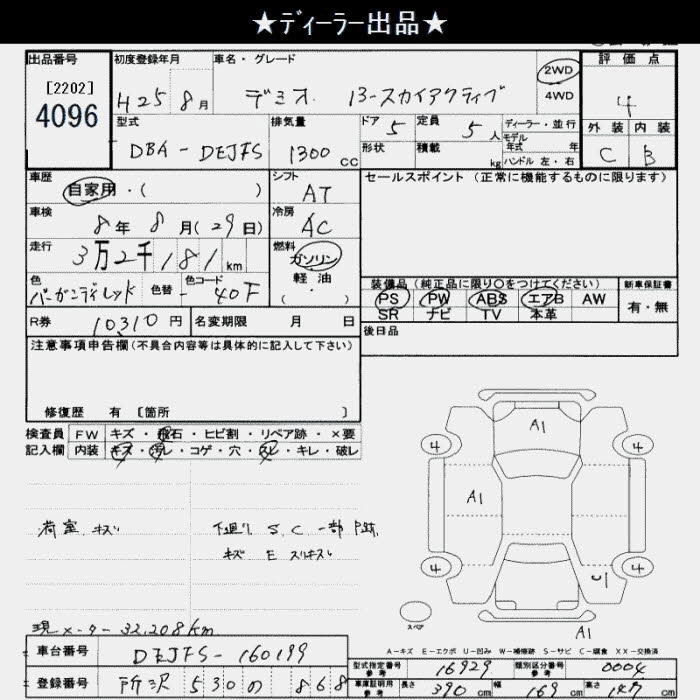 ★ディーラー出品★
出品番号 初度登録年月 車名・グレード 2WD 評価点
[2202] 4096 H25年 8月 デミオ 13-スカイアクティブ 4WD 4
型式 排気量 ドア 5 定員 5人 ディーラー・並行 外装 内装
DBA-DEJFS 1300cc 形状 積載 kg モデル年式 年 ハンドル 左・右 C B
車歴 自家用・( ) シフト AT セールスポイント(正常に機能するものに限ります)
車検 8年8月(29日) 冷房 AC
走行 3万2千181km 燃料 ガソリン
軽油
色 バーガンディレッド 色替 - 色コード 40F ( ・ )
装備品(純正品に限り○をつけてください) 新車保証書
PS PW ABS エアB AW 有・無
SR ナビ TV 本革
R券 10310円 名変期限 月 日 後日品
注意事項申告欄(不具合内容等は具体的に記入して下さい)
修復歴 有 [箇所 ]
検査員 FW キズ・飛石・ヒビ割・リペア跡・×要
記入欄 内装 キズ・汚レ・コゲ・穴・スレ・キレ・破レ
荷室 キズ 下廻り S、C 一部P跡
キズ E スリキズ
現メーター 32,208km
A1
4 4
A1
4 4
U1
スペア
A1
A-キズ E-エクボ U-凹み W-補修跡 S-サビ C-腐食 XX-交換済
車台番号 DEJFS-160199 型式指定番号 参考 16929 類別区分番号 参考 0004
登録番号 所沢 530 の 868 車庫証明用 参考 長さ 390cm 幅 169cm 高さ 147cm